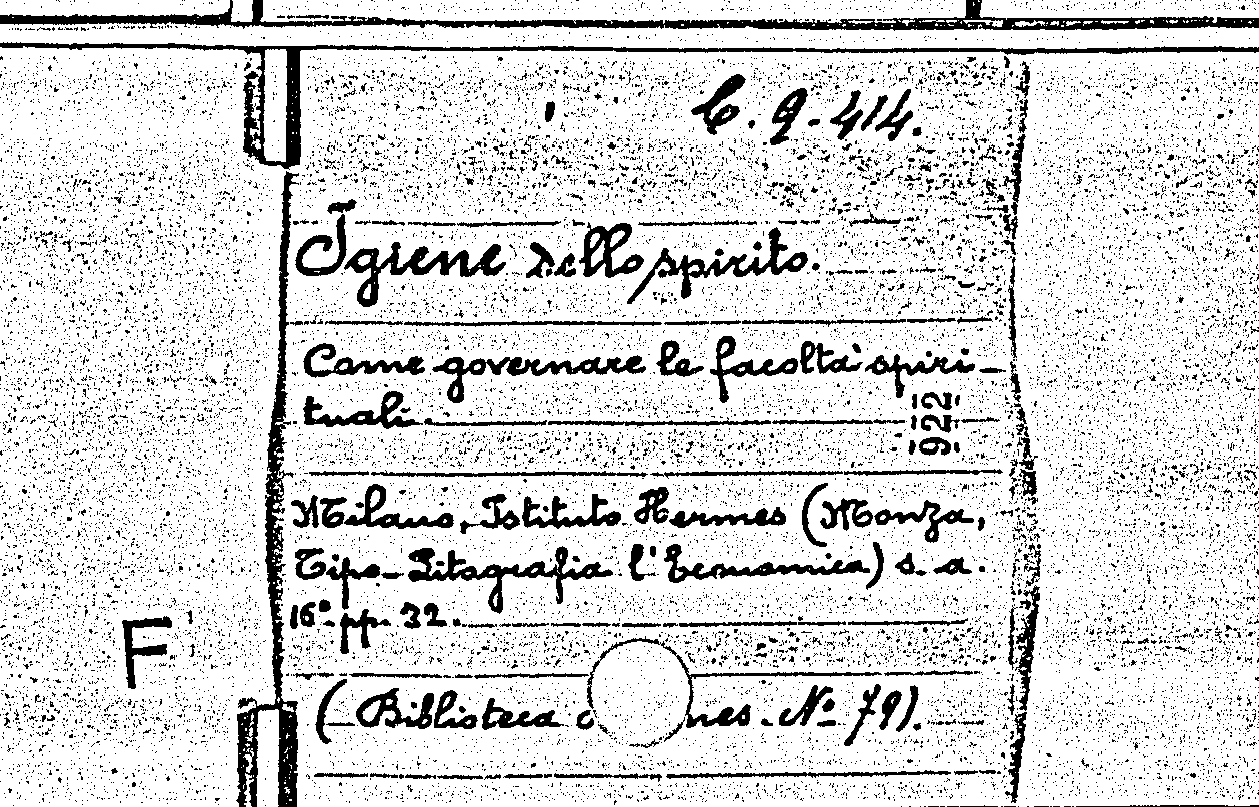 C. 9. 414.
Igiene dello spirito.
Come governare le facoltà spiri-
tuali.
1922
Milano, Istituto Hermes (Monza,
Tipo-Litografia l'Economica) s. a.
16° pp. 32.
F
(Biblioteca N° 79).